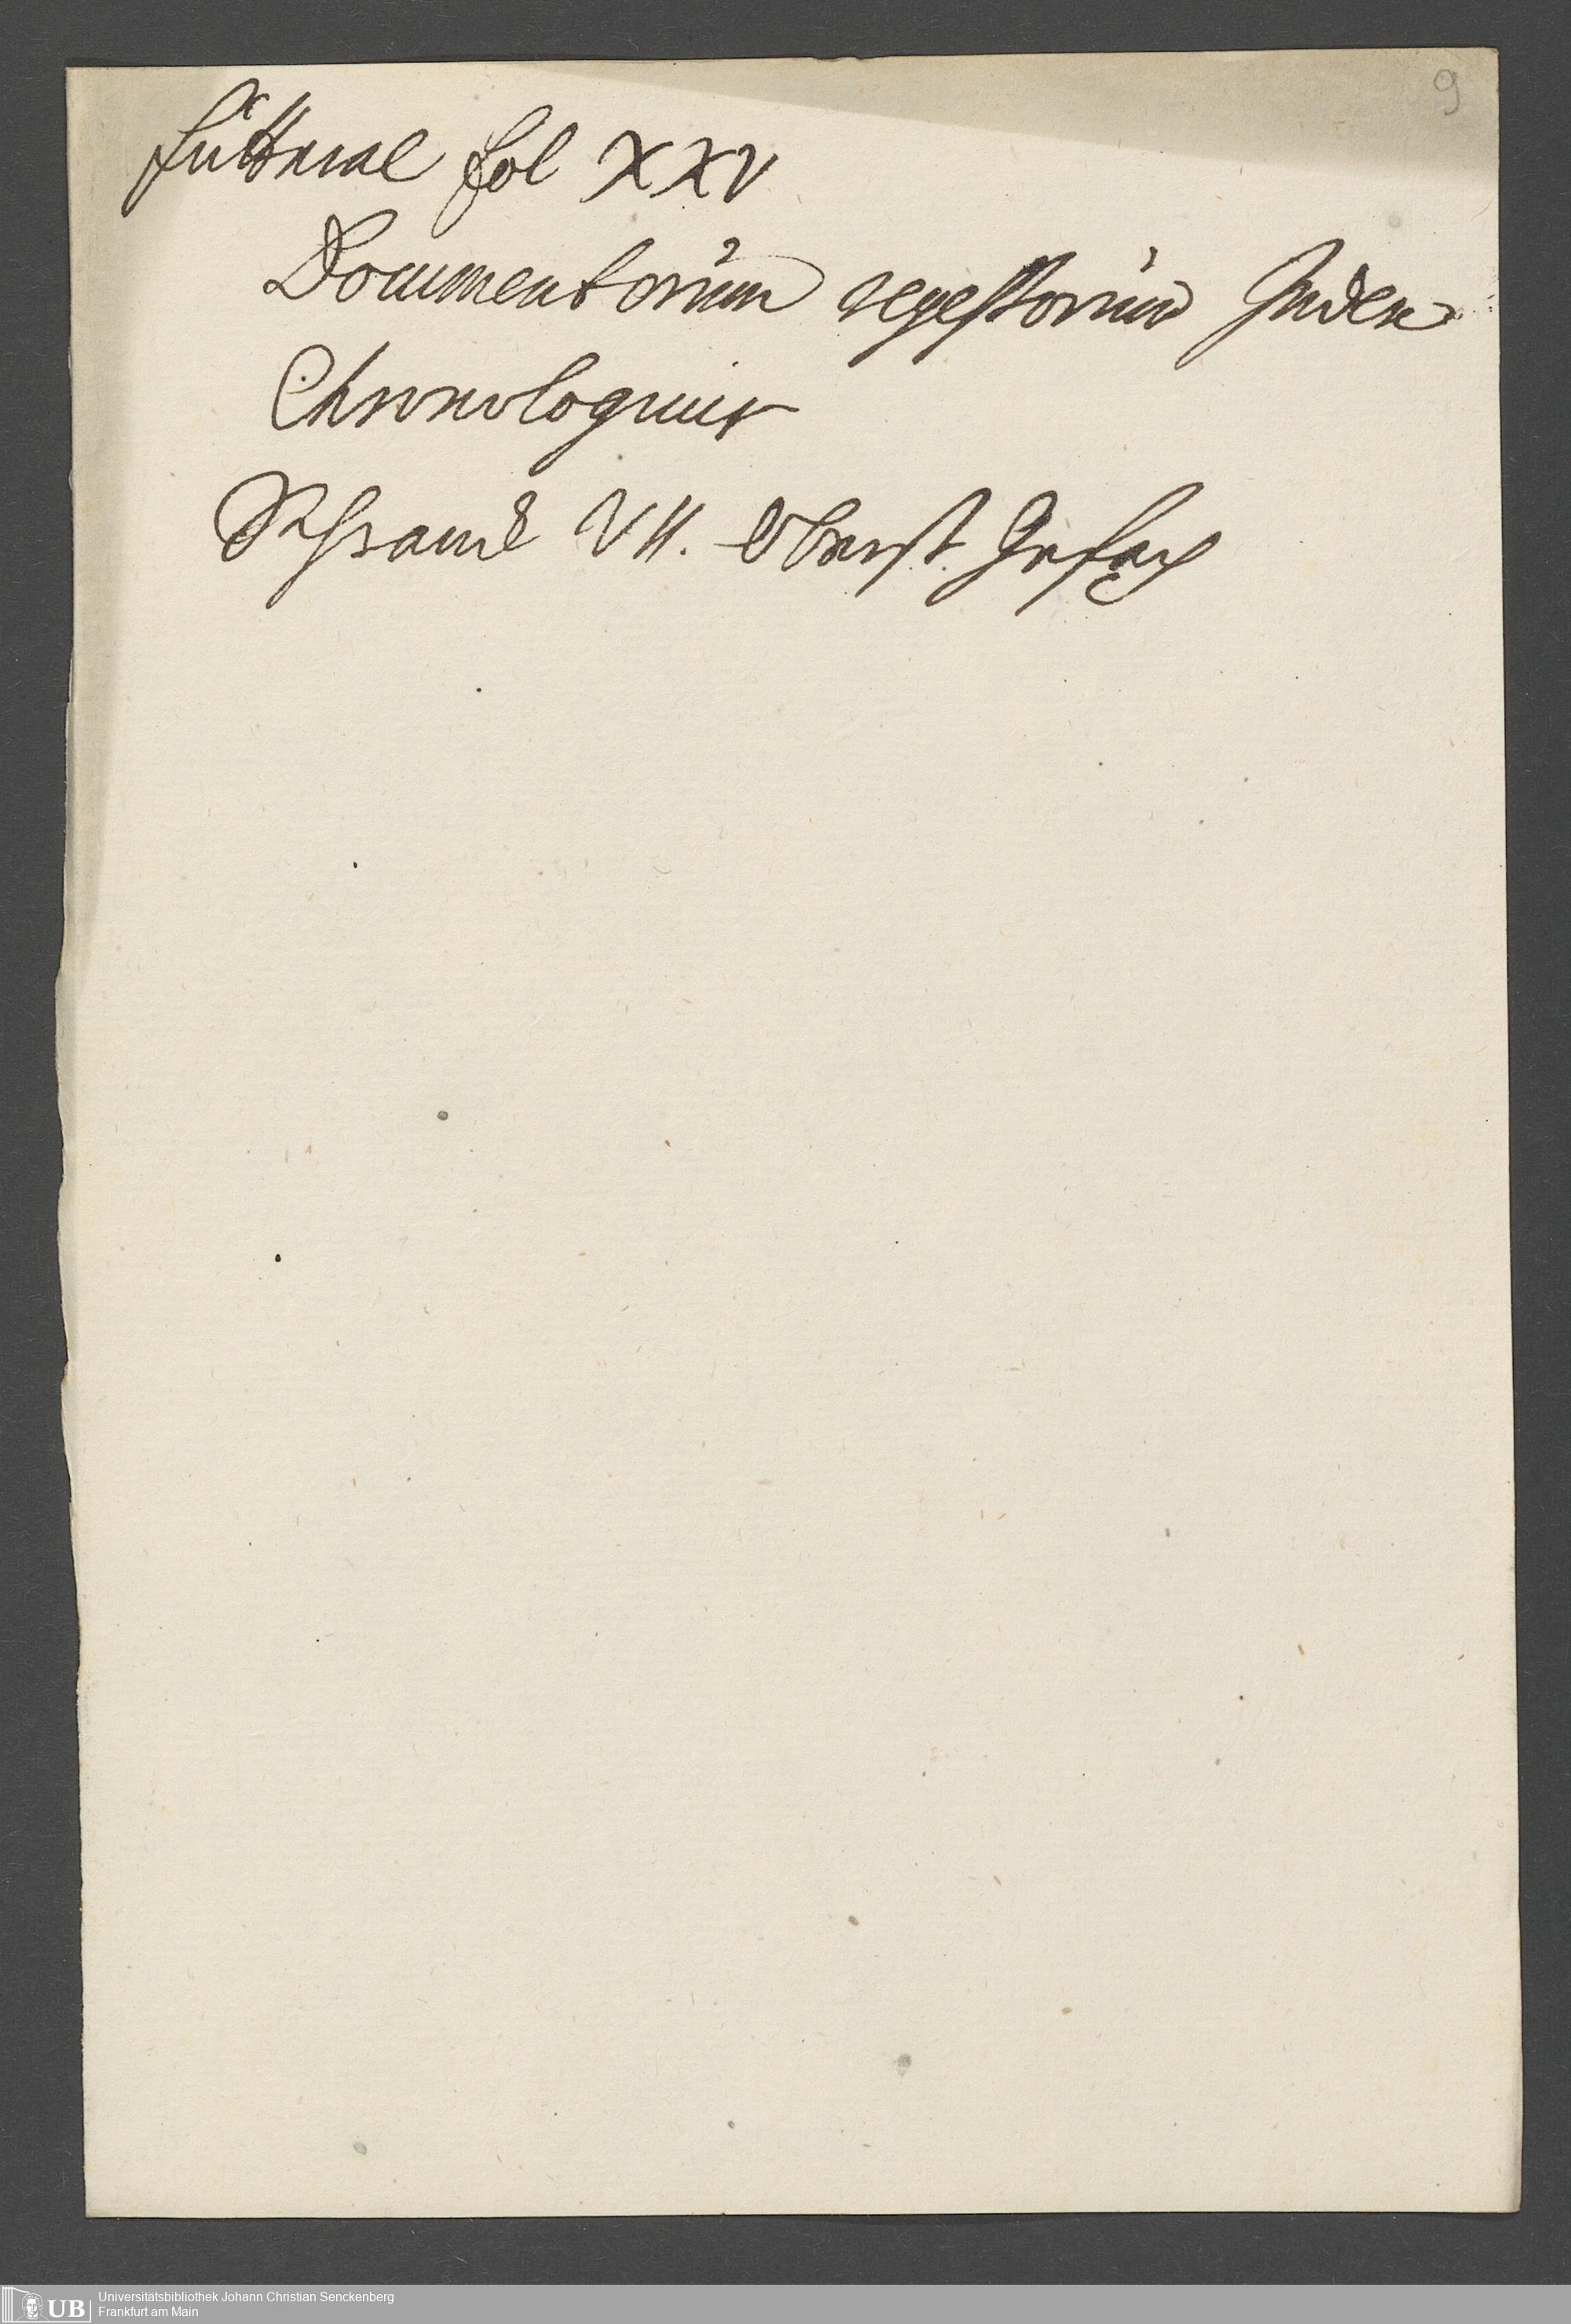 9
Futteral fol XXV
Documentorum regestorum Index
Chronologicus
Schranck VII. Oberst. Gefach
UB
Universitätsbibliothek Johann Christian Senckenberg
Frankfurt am Main